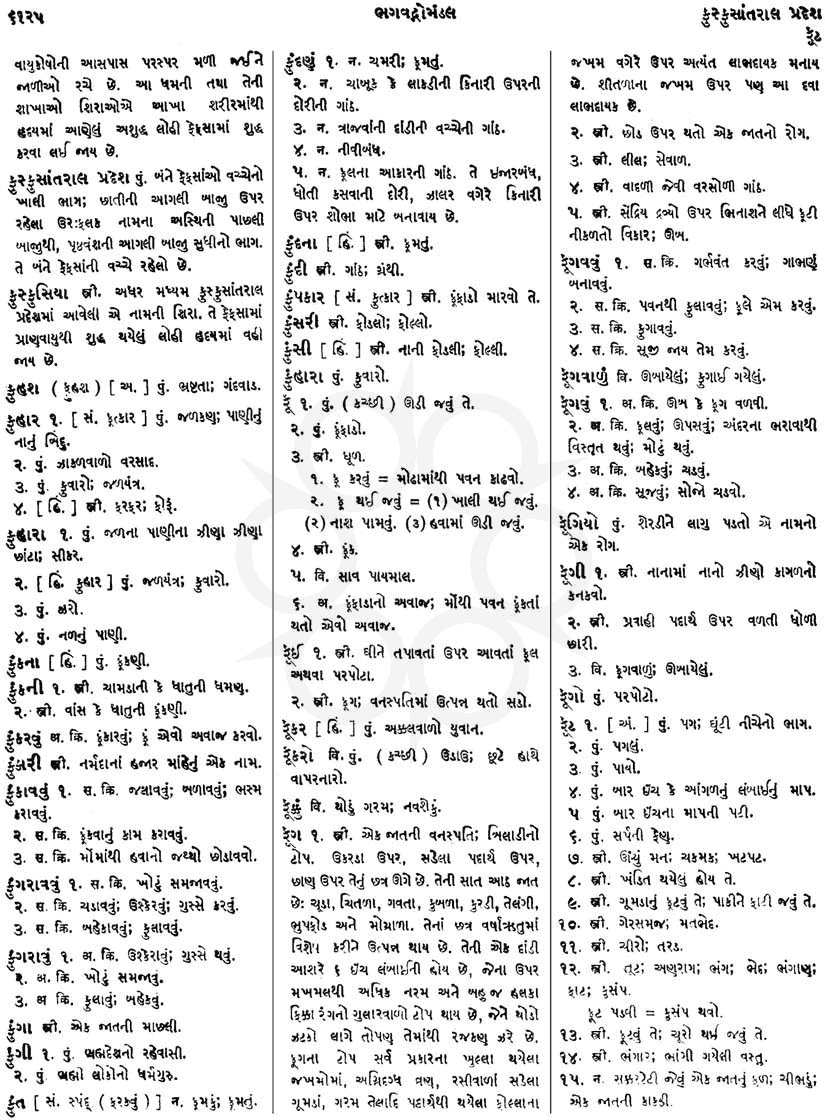 ૬૧૨૫
ભગવદ્ગોમંડલ
ફુસ્ફુસાંતરાલ પ્રદેશ
ફૂટ
વાયુકોષોની આસપાસ પરસ્પર મળી જઈને
જાળીઓ રચે છે. આ ધમની તથા તેની
શાખાઓ શિરાઓએ આખા શરીરમાંથી
હૃદયમાં આણેલું અશુદ્ધ લોહી ફેફસામાં શુદ્ધ
કરવા લઈ જાય છે.
ફુસ્ફુસાંતરાલ પ્રદેશ પું. બંને ફેફસાંઓ વચ્ચેનો
ખાલી ભાગ; છાતીની આગલી બાજુ ઉપર
રહેલા ઉરઃફલક નામના અસ્થિની પાછલી
બાજુથી, પૃષ્ઠવંશની આગલી બાજુ સુધીનો ભાગ.
તે બંને ફેફસાંની વચ્ચે રહેલો છે.
ફુસ્ફુસિયા સ્ત્રી. અધર મધ્યમ ફુસ્ફુસાંતરાલ
પ્રદેશમાં આવેલી એ નામની શિરા. તે ફેફસામાં
પ્રાણવાયુથી શુદ્ધ થયેલું લોહી હૃદયમાં વહી
જાય છે.
ફુહશ (ફુહશ) [ અ. ] પું. ભ્રષ્ટતા; ગંદવાડ.
ફુહાર ૧. [ સં. ફૂત્કાર ] પું. જળકણ; પાણીનું
નાનું બિંદુ.
૨. પું. ઝાકળવાળો વરસાદ.
૩. પું. ફુવારો; જળયંત્ર.
૪. [ હિં. ] સ્ત્રી. ફરફર; ફોરું.
ફુહારા ૧. પું. જળના પાણીના ઝીણા ઝીણા
છાંટા; સીકર.
૨. [ હિં. ફુહાર ] પું. જળયંત્ર; ફુવારો.
૩. પું. ઝરો.
૪. પું. નળનું પાણી.
ફુંકના [ હિં. ] પું. ફૂંકણી.
ફુંકની ૧. સ્ત્રી. ચામડાની કે ધાતુની ધમણ.
૨. સ્ત્રી. વાંસ કે ધાતુની ફૂંકણી.
ફુંકરવું અ. ક્રિ. ફૂંકારવું; ફૂં એવો અવાજ કરવો.
સ્ત્રી. નર્મદાનાં હજાર માંહેનું એક નામ.
ફુંકાવવું ૧. સ. ક્રિ. જલાવવું; બળાવવું; ભસ્મ
કરાવવું.
૨. સ. ક્રિ. ફૂંકવાનું કામ કરાવવું.
૩. સ. ક્રિ. મોંમાંથી હવાનો જથ્થો છોડાવવો.
ફુંગરાવવું ૧. સ. ક્રિ. ખોટું સમજાવવું.
૨. સ. ક્રિ. ચડાવવું; ઉશ્કેરવું; ગુસ્સે કરવું.
૩. સ. ક્રિ. બહેકાવવું; ફુલાવવું.
ફુંગરાવું ૧. અ. ક્રિ. ઉશ્કેરાવું; ગુસ્સે થવું.
૨. અ. ક્રિ. ખોટું સમજાવું.
૩. અ ક્રિ. ફુલાવું; બહેકવું.
ફુંગા સ્ત્રી. એક જાતની માછલી.
ફુંગી ૧. પું. બ્રહ્મદેશનો રહેવાસી.
૨. પું. બ્રહ્મી લોકોનો ધર્મગુરુ.
ફુંત [ સં. સ્પંદ્ (ફરકવું) ] ન. ફૂમકું; ફૂમતું.
ફુંદણું ૧. ન. ચમરી; ફૂમતું.
૨. ન. ચાબૂક કે લાકડીની કિનારી ઉપરની
દોરીની ગાંઠ.
૩. ન. ત્રાજવાંની દાંડીની વચ્ચેની ગાંઠ.
૪. ન. નીવીબંધ.
૫. ન. ફૂલના આકારની ગાંઠ. તે ઇજારબંધ,
ધોતી કસવાની દોરી, ઝાલર વગેરે કિનારી
ઉપર શોભા માટે બનાવાય છે.
ફુંદના [ હિં. ] સ્ત્રી. ફૂમતું.
ફુંદી સ્ત્રી. ગાંઠ; ગ્રંથી.
ફુંપકાર [ સં. ફુત્કાર ] સ્ત્રી. ફૂંફાડો મારવો તે.
ફુંસરી સ્ત્રી. ફોડલો; ફોલ્લો.
ફુંસી [ હિં. ] સ્ત્રી. નાની ફોડલી; ફોલ્લી.
ફુંહારા પું. ફુવારો.
ફૂં ૧. પું. (કચ્છી) ઊડી જવું તે.
૨. પું. ફૂંફાડો.
૩. સ્ત્રી. ધૂળ.
૧. ફૂ કરવું = મોઢામાંથી પવન કાઢવો.
૨. ફૂ થઈ જવું = (૧) ખાલી થઈ જવું.
(૨) નાશ પામવું. (૩) હવામાં ઊડી જવું.
૪. સ્ત્રી. ફૂંક.
૫. વિ. સાવ પાયમાલ.
૬. અ. ફૂંફાડાનો અવાજ; મોંથી પવન ફૂંકતાં
થતો એવો અવાજ.
ફૂંઈ ૧. સ્ત્રી. ઘીને તપાવતાં ઉપર આવતાં ફૂલ
અથવા પરપોટા.
૨. સ્ત્રી. ફૂગ; વનસ્પતિમાં ઉત્પન્ન થતો સડો.
ફૂંકર [ હિં. ] પું. અક્કલવાળો યુવાન.
ફૂંકરો વિ. પું. (કચ્છી) ઉડાઉ; છૂટે હાથે
વાપરનારો.
વિ. થોડું ગરમ; નવશેકું.
ફૂંગ ૧. સ્ત્રી. એક જાતની વનસ્પતિ; બિલાડીનો
ટોપ. ઉકરડા ઉપર, સડેલા પદાર્થ ઉપર,
છાણ ઉપર તેનું છત્ર ઊગે છે. તેની સાત આઠ જાત
છેઃ ચૂડા, ચિતળા, ગવતા, કુબળા, કુરડી, તેલંગી,
ભુપફોડ અને મોગાળા. તેનાં છત્ર વર્ષાઋતુમાં
વિશેષ કરીને ઉત્પન્ન થાય છે. તેની એક દાંડી
આશરે ૬ ઇંચ લંબાઈની હોય છે, જેના ઉપર
મખમલથી અધિક નરમ અને બહુ જ હલકા
ફિક્કા રંગનો ગુલારવાળો ટોપ થાય છે, જેને થોડો
ઝટકો લાગે તોપણ તેમાંથી રજકણ ઝરે છે.
ફૂગના ટોપ સર્વ પ્રકારના ખુલ્લા થયેલા
જખમોમાં, અગ્નિદગ્ધ વ્રણ, રસીવાળાં સડેલા
ગૂમડાં, ગરમ તેલાદિ પદાર્થથી થયેલા ફોલ્લાના
જખમ વગેરે ઉપર અત્યંત લાભદાયક મનાય
છે. શીતળાના જખમ ઉપર પણ આ દવા
લાભદાયક છે.
૨. સ્ત્રી. છોડ ઉપર થતો એક જાતનો રોગ.
૩. સ્ત્રી. લીલ; સેવાળ.
૪. સ્ત્રી. વાદળી જેવી વરસોળી ગાંઠ.
૫. સ્ત્રી. સેંદ્રિય દ્રવ્યો ઉપર ભિનાશને લીધે ફૂટી
નીકળતો વિકાર; ઊબ.
ફૂંગવવું ૧. સ. ક્રિ. ગર્ભવંત કરવું; ગાભણું
બનાવવું.
૨. સ. ક્રિ. પવનથી ફુલાવવું; ફૂલે એમ કરવું.
૩. સ. ક્રિ. ફુગાવવું.
૪. સ. ક્રિ. સૂજી જાય તેમ કરવું.
ફૂંગવાળું વિ. ઊબાયેલું; ફુગાઈ ગયેલું.
ફૂંગવું ૧. અ. ક્રિ. ઊબ કે ફૂગ વળવી.
૨. અ. ક્રિ. ફૂલવું; ઊપસવું; અંદરના ભરાવાથી
વિસ્તૃત થવું; મોટું થવું.
૩. અ. ક્રિ. બહેકવું; ચડવું.
૪. અ. ક્રિ. સૂજવું; સોજો ચડવો.
ફૂંગિયો પું. શેરડીને લાગુ પડતો એ નામનો
એક રોગ.
ફૂંગી ૧. સ્ત્રી. નાનામાં નાનો ઝીણો કાગળનો
કનકવો.
૨. સ્ત્રી. પ્રવાહી પદાર્થ ઉપર વળતી ધોળી
છારી.
૩. વિ. ફૂગવાળું; ઊબાયેલું.
ફૂંગો પું. પરપોટો.
ફૂટ ૧. [ અં. ] પું. પગ; ઘૂંટી નીચેનો ભાગ.
૨. પું. પગલું.
૩. પું. પાયો.
૪. પું. બાર ઇંચ કે આંગળનું લંબાઈનું માપ.
૫ પું. બાર ઇંચના માપની પટી.
૬. પું. સર્પની ફેણ.
૭. સ્ત્રી. ઊંચું મન; ચકમક; ખટપટ.
૮. સ્ત્રી. ખંડિત થયેલું હોય તે.
૯. સ્ત્રી. ગૂમડાનું ફૂટવું તે; પાકીને ફાટી જવું તે.
૧૦. સ્ત્રી. ગેરસમજ; મતભેદ.
૧૧. સ્ત્રી. ચીરો; તરડ.
૧૨. સ્ત્રી. તૂટ; અણરાગ; ભંગ; ભેદ; ભંગાણ;
ફાટ; કુસંપ.
ફૂટ પડવી = કુસંપ થવો.
૧૩. સ્ત્રી. ફૂટવું તે; ચૂરો થઈ જવું તે.
૧૪. સ્ત્રી. ભંગાર; ભાંગી ગયેલી વસ્તુ.
૧૫. ન. સક્કરટેટી જેવું એક જાતનું ફળ; ચીભડું;
એક જાતની કાકડી.